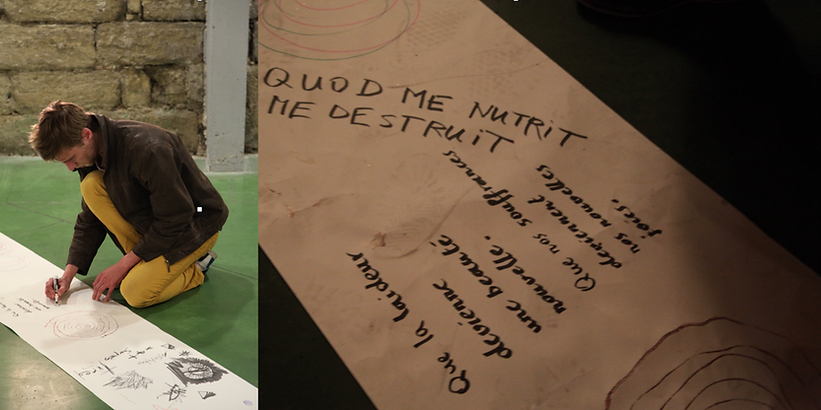 QUOD ME NUTRIT
ME DESTRUIT
Que la laideur
devienne
une beauté
nouvelle.
Que nos souffrances
deviennent
nos nouvelles
joies.